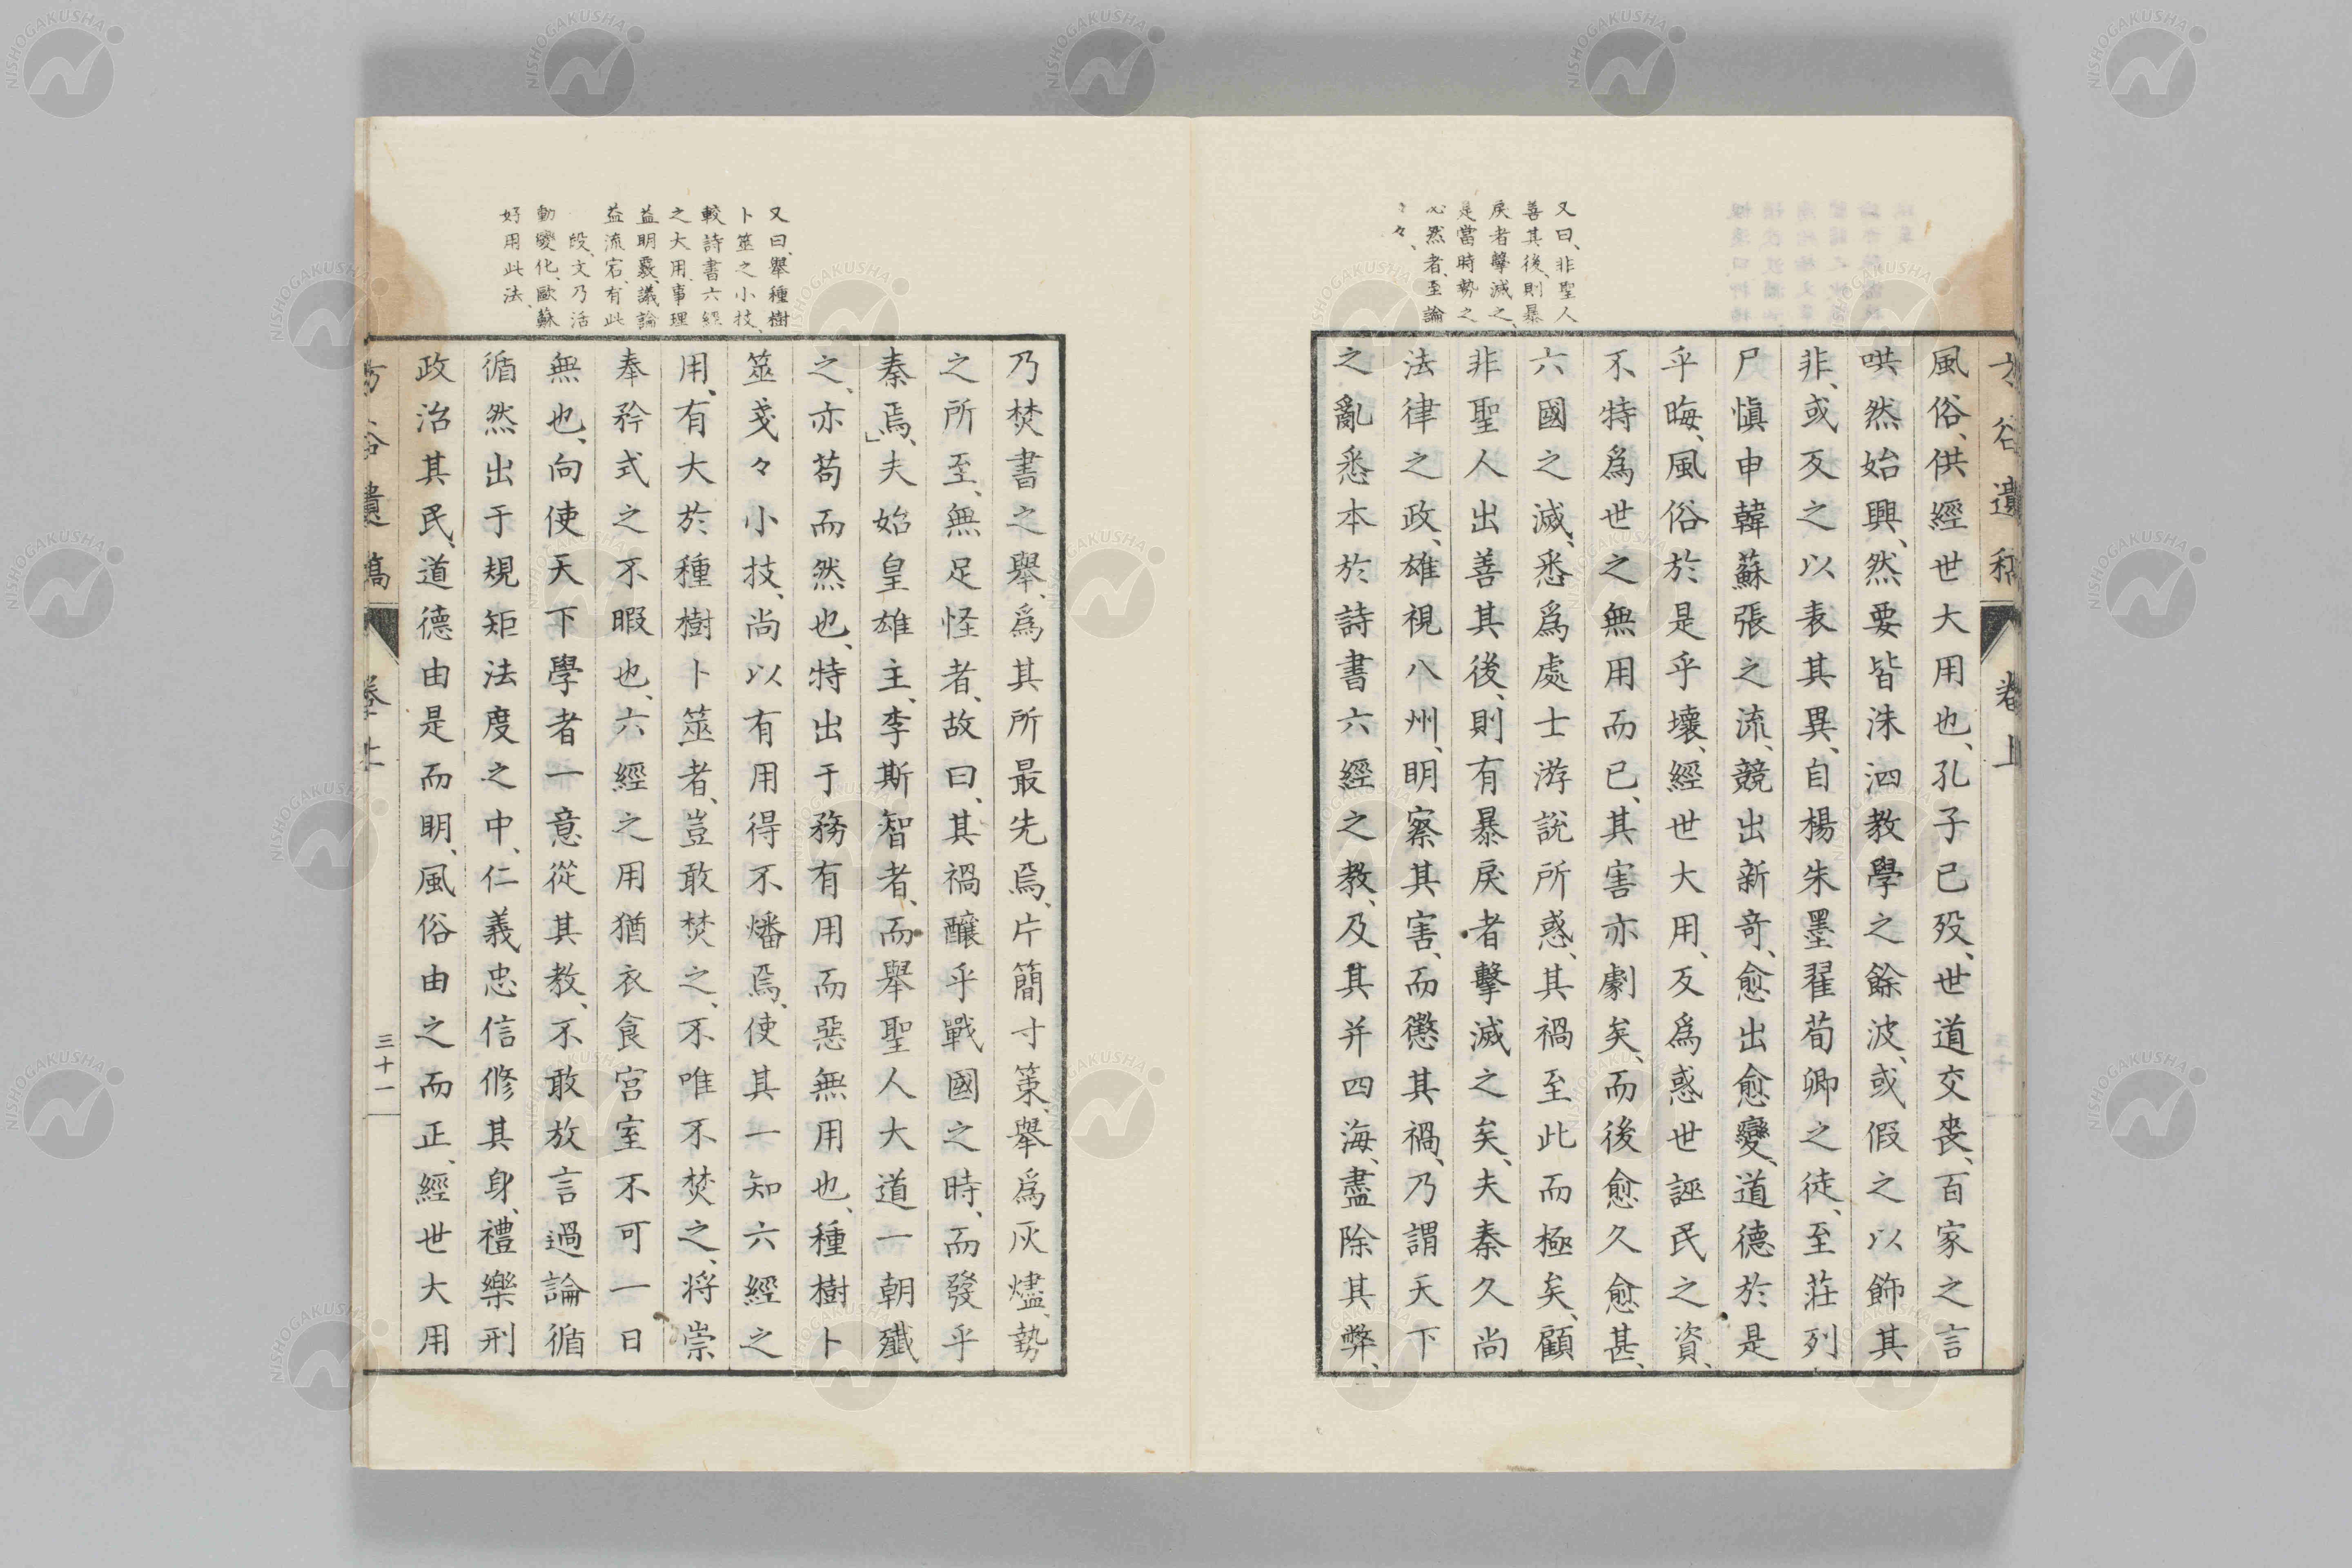 又曰、非聖人
善其後、則暴
戾者擊滅之、
是當時勢之
必然者、至論
々々、
風俗、供經世大用也、孔子已歿、世道交喪、百家之言
哄然始興、然要皆洙泗教學之餘波、或假之以飾其
非、或反之以表其異、自楊朱墨翟荀卿之徒、至莊列
尸愼申韓蘇張之流、競出新奇、愈出愈變、道德於是
乎晦、風俗於是乎壞、經世大用、反爲惑世誣民之資、
不特爲世之無用而已、其害亦劇矣、而後愈久愈甚、
六國之滅、悉爲處士游說所惑、其禍至此而極矣、顧
非聖人出善其後、則有暴戾者擊滅之矣、夫秦久尚
法律之政、雄視八州、明察其害、而懲其禍、乃謂天下
之亂悉本於詩書六經之教、及其并四海、盡除其弊、
又曰、舉種樹
卜筮之小技、
較詩書六經
之大用、事理
益明覈、議論
益流宕、有此
一段、文乃活
動變化、歐蘇
好用此法、
乃焚書之舉、爲其所最先焉、片簡寸策、舉爲灰燼、勢
之所至、無足怪者、故曰、其禍釀乎戰國之時、而發乎
秦焉、」夫始皇雄主、李斯智者、而舉聖人大道一朝殲
之、亦苟而然也、特出于務有用而惡無用也、種樹卜
筮戔々小技、尚以有用得不燔焉、使其一知六經之
用、有大於種樹卜筮者、豈敢焚之、不唯不焚之、將崇
奉矜式之不暇也、六經之用猶衣食宮室不可一日
無也、向使天下學者一意從其教、不敢放言過論循
循然出于規矩法度之中、仁義忠信修其身、禮樂刑
政治其民、道德由是而明、風俗由之而正、經世大用
卷上
三十一